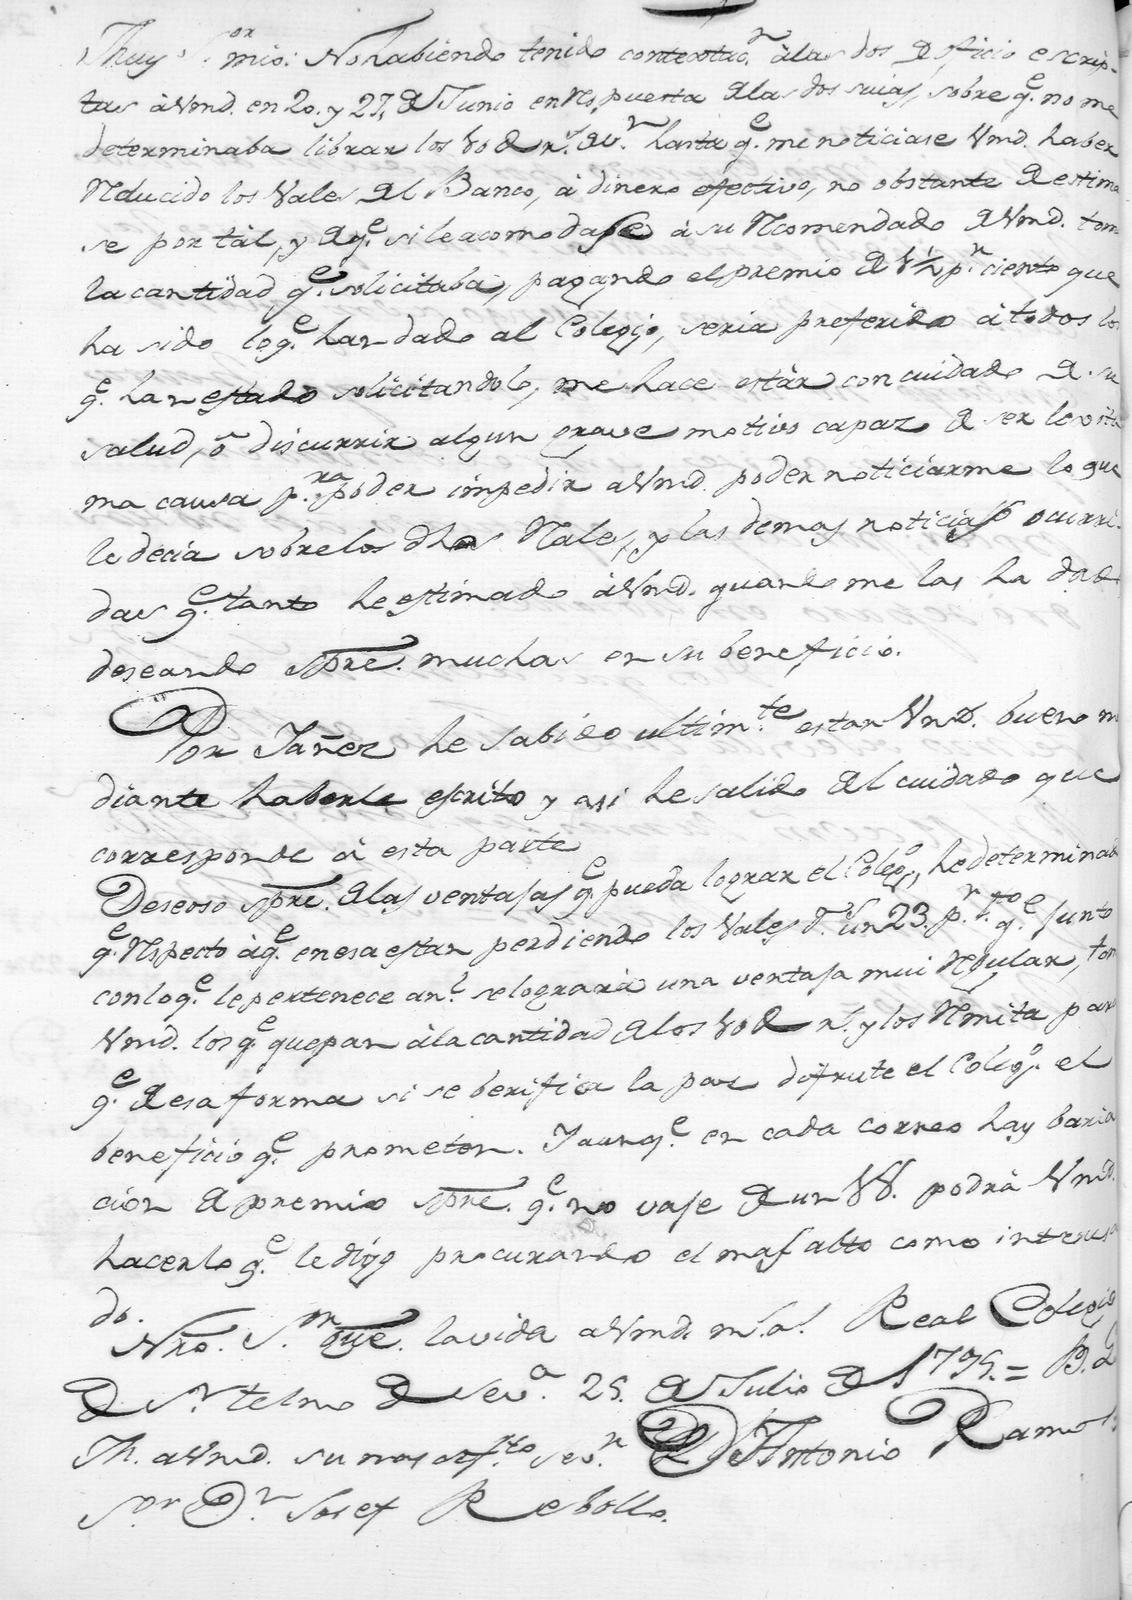 Muy S.or mio: No habiendo tenido contextac.n à las dos de oficio escrip-
tas à Vmd. en 20. y 27, de Junio en Respuesta de las dos suias, sobre q.e no me
determinaba librar los 80 de r.s v.n hasta q.e me noticiase Vmd. haber
Reducido los Vales del Banco, à dinero efectivo, no obstante de estima
se por tàl, y de q.e si le acomodase à su Recomendado de Vmd. tom
la cantidad q.e solicitaba, pagando el premio de 8½ p.r ciento que
ha sido lo q.e han dado al Colegio, seria preferido à todos los
q.e han estado solicitandolo, me hace estàr con cuidado de su
salud, ò discurrir algun grave motivo capaz de ser lexiti
ma causa p.ra poder impedir a Vmd. poder noticiarme lo que
le decia sobre los dhos Vales, y las demas noticias ocurri-
das q.e tanto he estimado à Vmd. quando me las ha dado
deseando spre. muchas en su beneficio.
Por Iañez he sabido ultim.te estar Vmd. bueno m
diante haberle escrito y asi he salido del cuidado que
corresponde à esta parte
Deseoso spre. de las ventajas q.e pueda lograr el Coleg.o, he determinad
q.e Respecto à q.e en esa estan perdiendo los Vales un 23. p.r q.e junto
con lo q.e le pertenece an.l se lograrà una ventaja mui Regular, tom
Vmd. los q.e quepan à la cantidad de los 80 de r.s y los Remita para
q.e de esa forma si se berifica la paz disfrute el Coleg.o el
beneficio q.e prometen. Y aunq.e en cada correo hay baria
cion de premio spre. q.e no vaje de un 88. podrà Vmd.
hacerlo q.e le digo procurando el mas alto como interesa
do.
Nro. S.or gue. la vida a Vmd. m.s a.s Real Colegio
de S.n Telmo de Sev.a 25. de Julio de 1795. = B. L
M. a Vmd. su mas af.to sev.r D.n Antonio Ramos
S.or D.n Josef Rebollo.